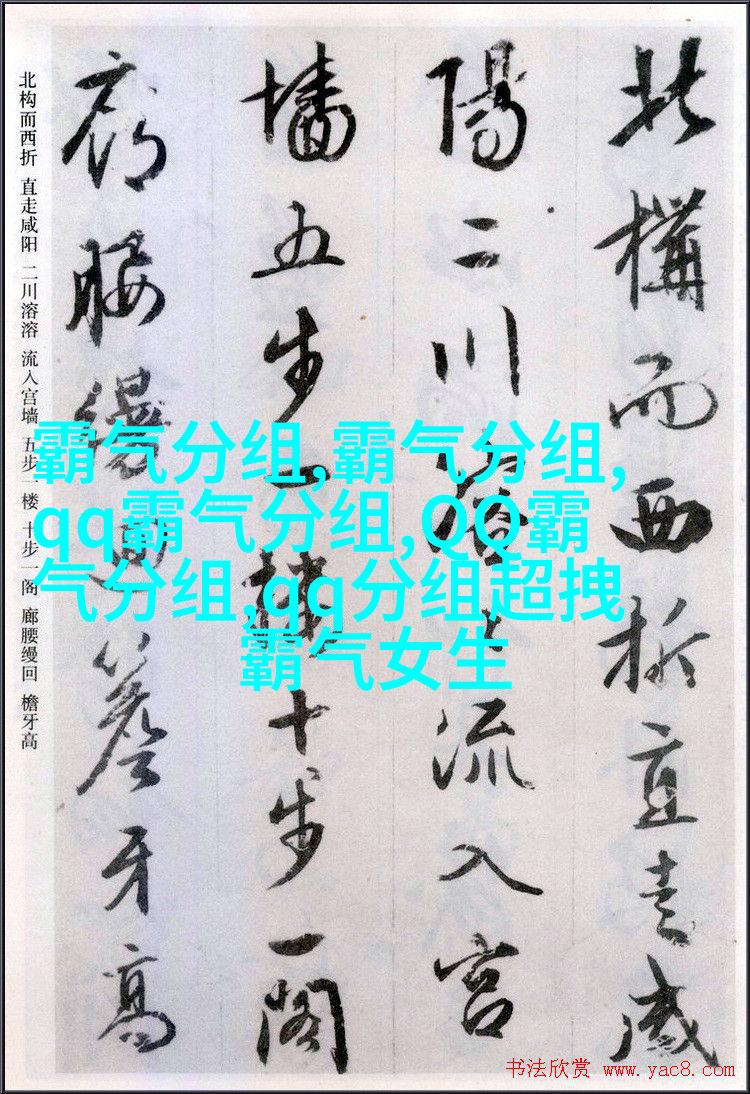 北構而西折直走咸
陽二川溶々流入宮
墻五步一樓十步一閣
廊腰縵迴簷牙高
北构而西折 直走咸阳 二川溶溶 流入宫墙 五步一楼 十步一阁 廊腰缦回 檐牙高
霸气分组,霸气分组,
qq霸气分组,QQ霸
气分组,qq分组超拽
霸气女生
书法欣赏 www.yac8.com